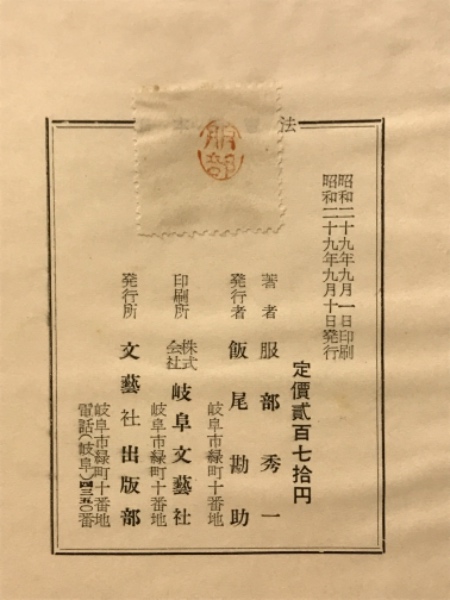 昭和二十九年九月一日印刷
昭和二十九年九月十日発行
法 本
服部
定價貳百七拾円
著者 服部秀一
発行者 飯尾勘助
岐阜市緑町十番地
印刷所 株式会社 岐阜文藝社
岐阜市緑町十番地
発行所 文藝社出版部
岐阜市緑町十番地
電話(岐阜)四三五〇番